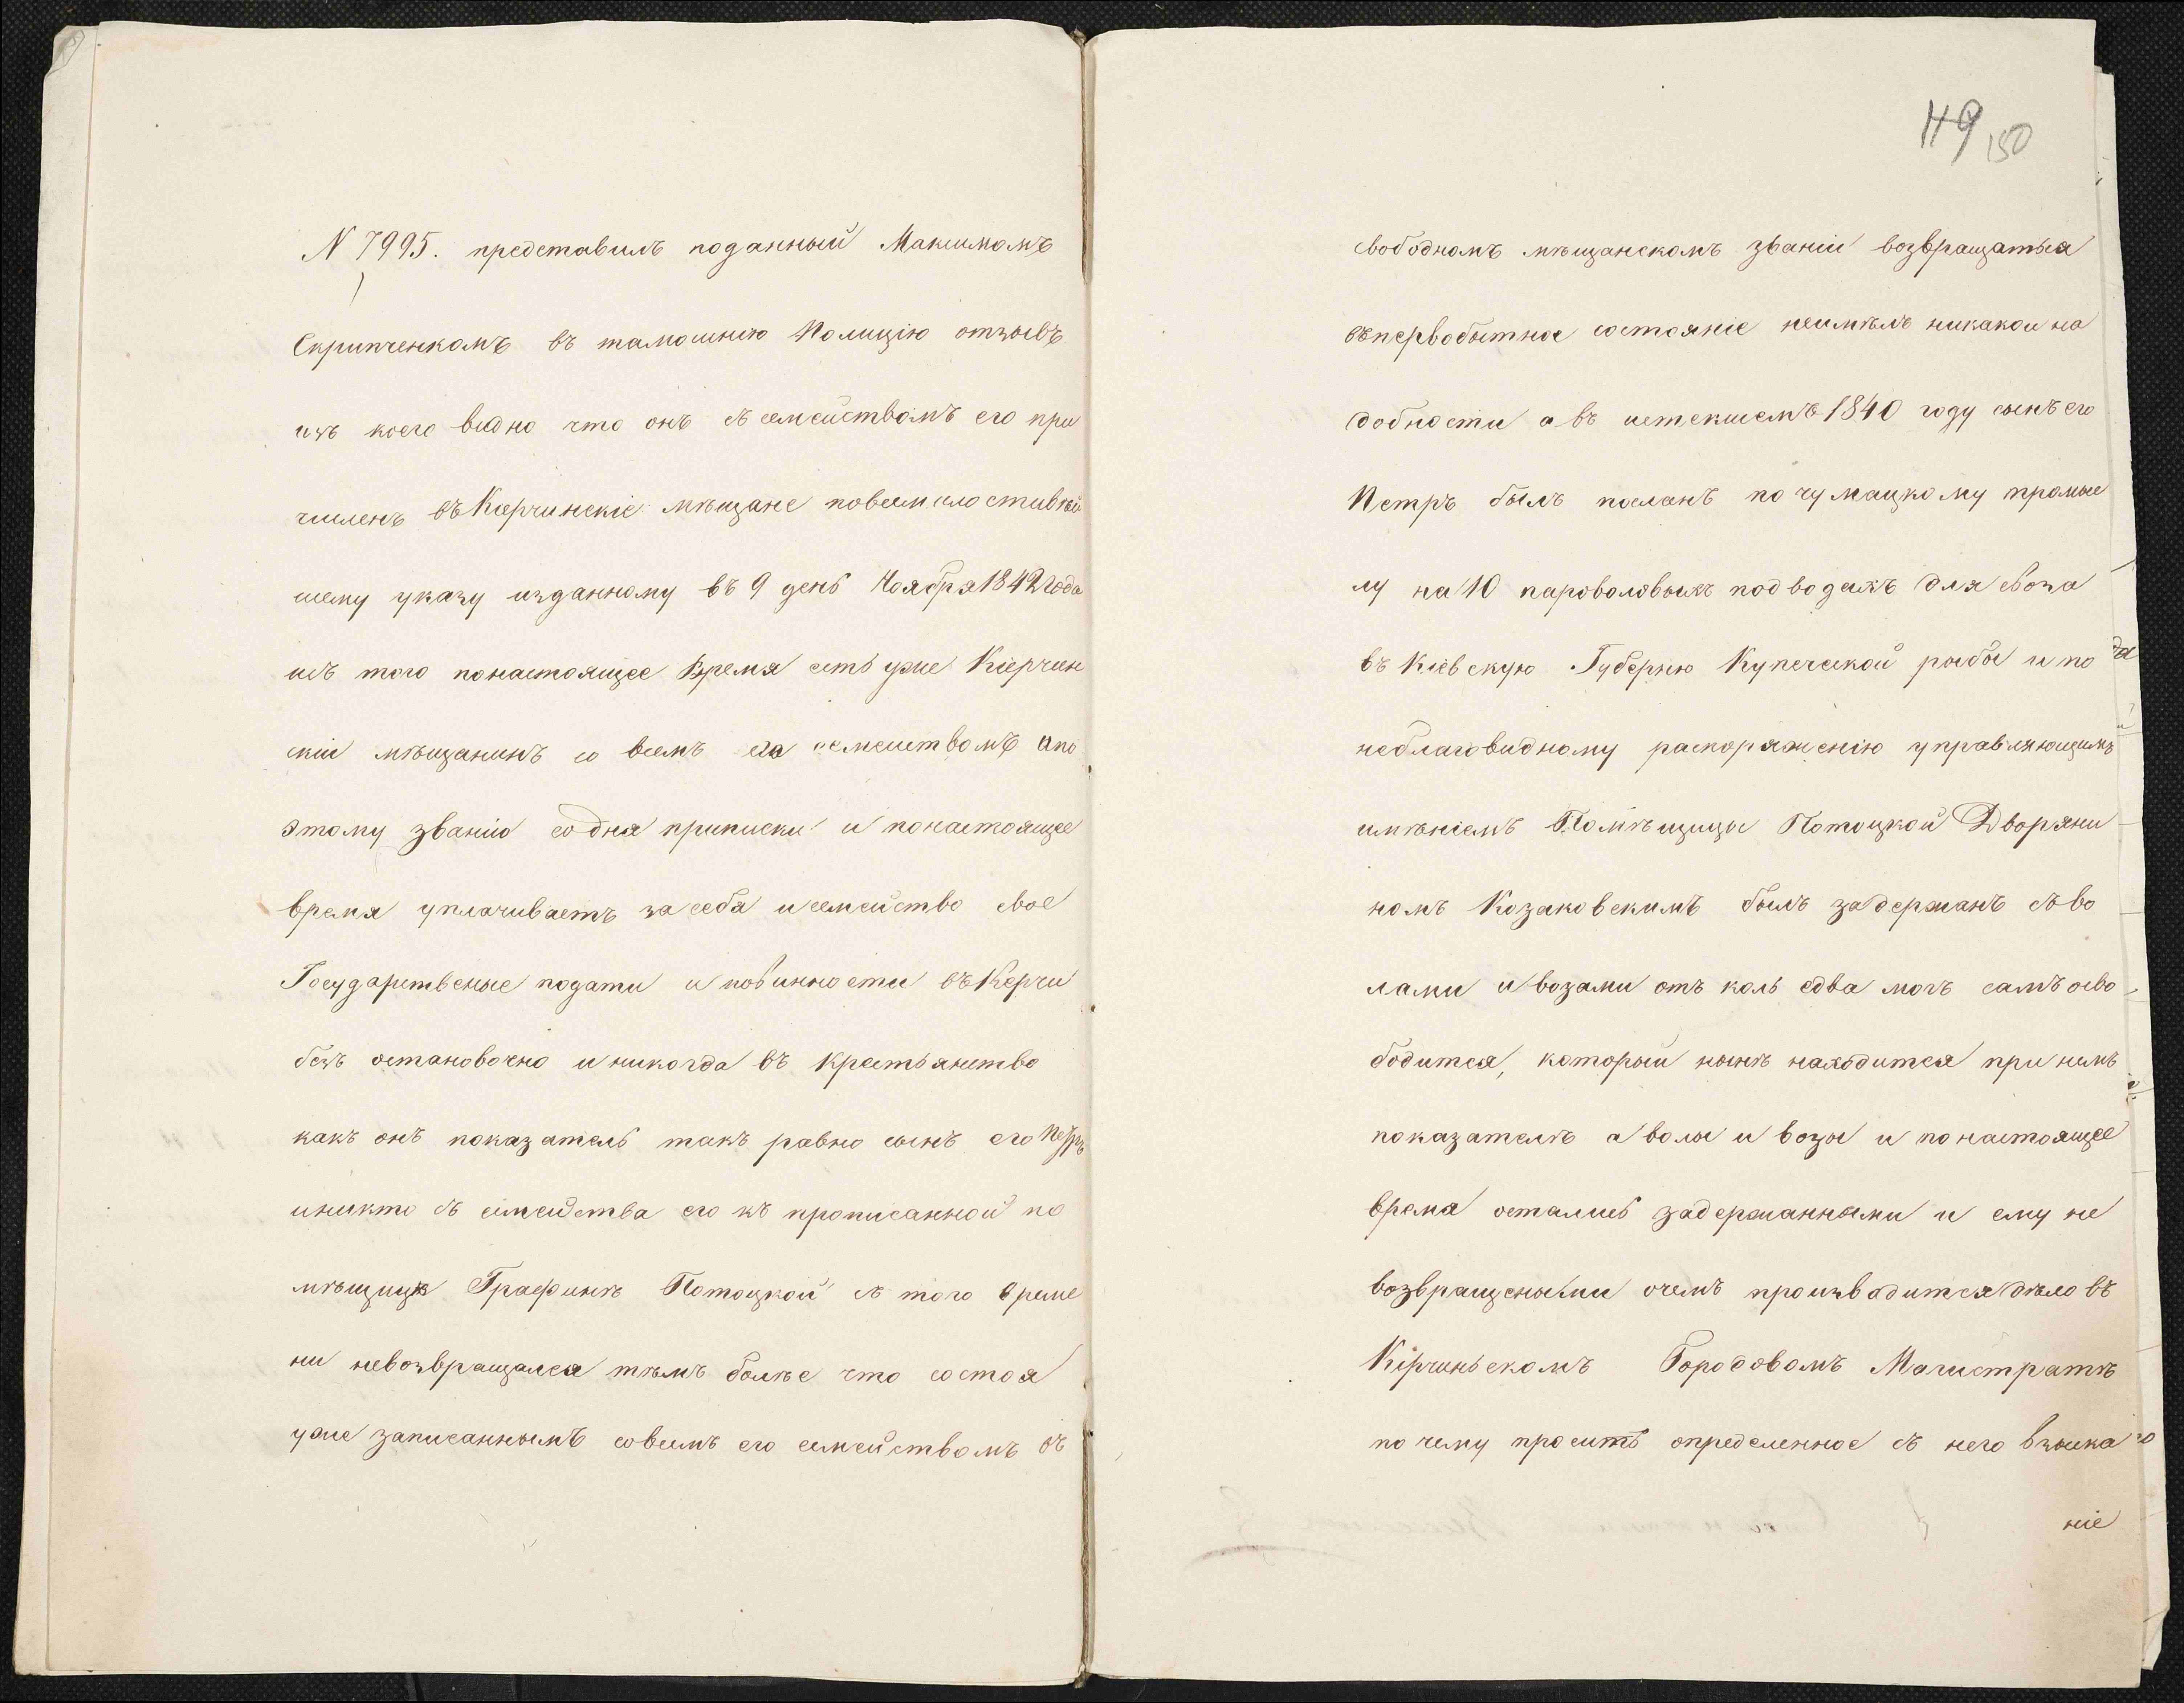 N 7995. представилъ поданный Максимомъ
Скрипченкомъ въ тамошнюю Полицію отзывъ
изъ коего видно что онъ съ семействомъ его при
численъ въ Керчинскіе мѣщане повсемилостивѣй
шему указу изданному въ 9 день Ноября 1842 года
исъ того понастоящее Время есть уже Кіерчин
скій мѣщанинъ со всемъ его семействомъ апо
этому званію со дня приписки и понастоящее
время уплачиваетъ засебя и семейство свое
Государственые подати и повинности въ Керчи
безъ остановочно и никогда въ крестьянство
какъ онъ показатель такъ равно сынъ его Петръ
иникто съ семейства его къ прописанной по
мѣщицѣ Графинѣ Потоцкой съ того време
ни невозвращался тѣмъ более что состоя
уже записаннымъ совсемъ его семействомъ въ
49 150
свободномъ мѣщанскомъ званіи возвращатьса
въпервобытное состояніе неимѣлъ никакои на
добности а въ истекшемъ 1840 году сынъ его
Петръ былъ посланъ по чумацкому промыс
лу на 10 пароволовыхъ подводахъ для свoза
въ Кіевскую Губернію Купеческой рыбы и по
неблаговидному распоряженію управляющимъ
имѣніемъ Помѣщицы Потоцкой Дворяни
номъ Козаковскимъ былъ задержанъ съ во
лами и возами отъ коль едва могъ самъ осво
бодится, который нынѣ находится при немъ
показателѣ а волы и возы и понастоящее
время осталисъ задержанными и ему не
возвращеными очемъ производится дѣло въ
Кірчиньскомъ Городовомъ Магистратѣ
по чему проситъ определенное съ него взыска
ніе